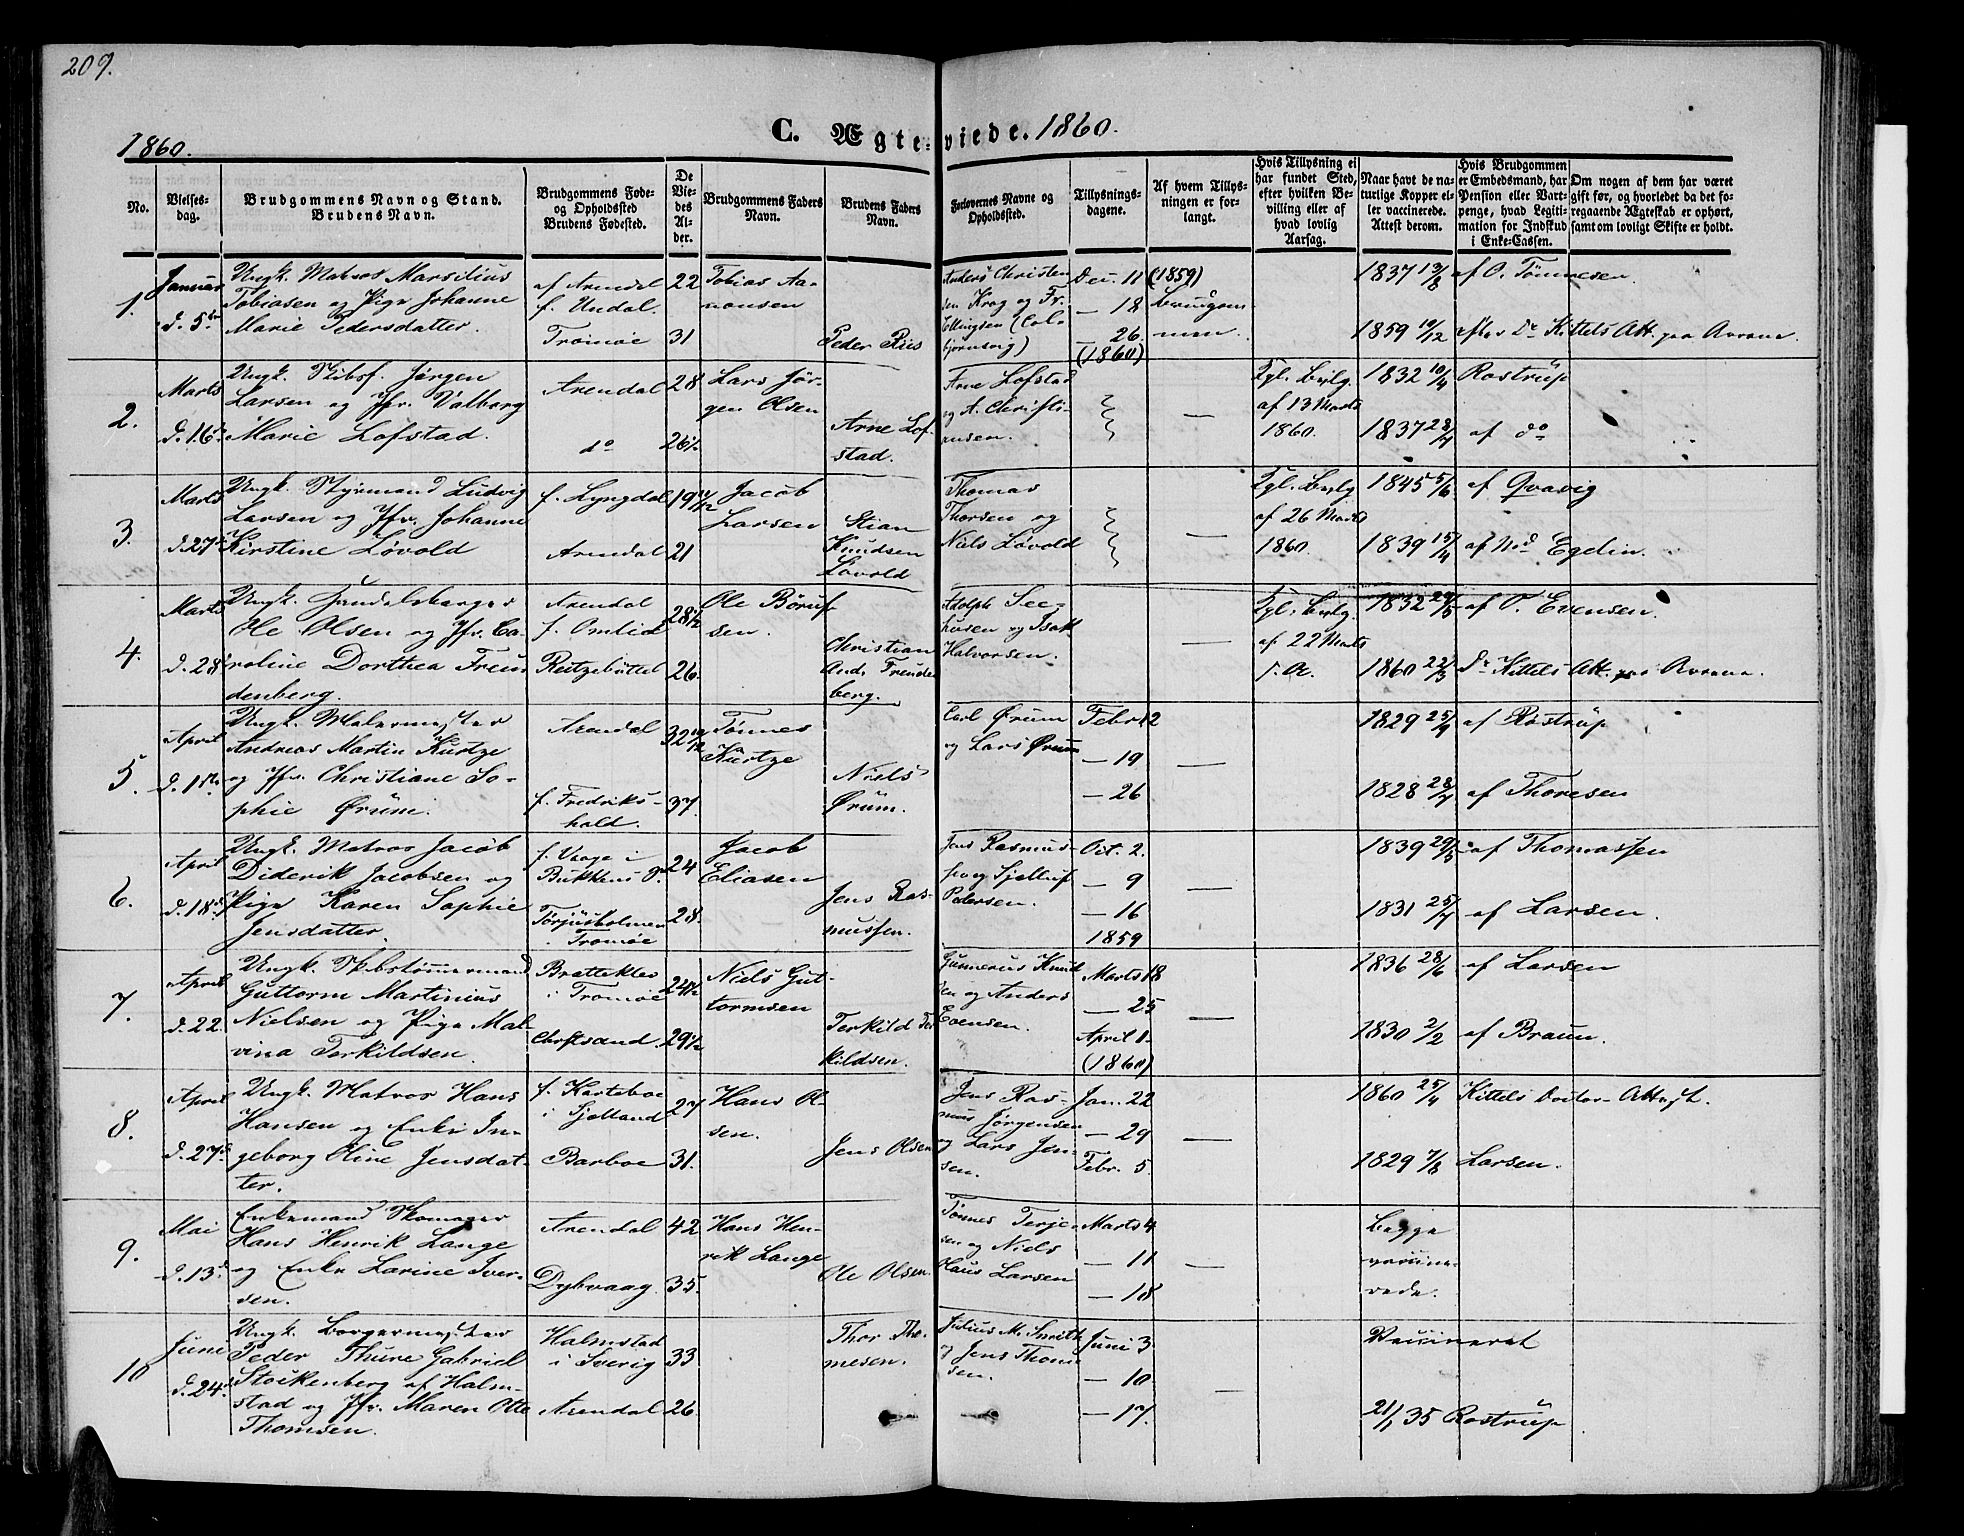 209.
1860.
C. Ægteviede. 1860.
No.
Vielsesdag.
Brudgommens Navn og Stand.
Brudens Navn.
Brudgommens Føde-
og Opholdssted
Brudens Fødested.
De
Vie-
des
Al-
der.
Brudgommens Faders
Navn.
Brudens Faders
Navn.
Forlovernes Navne og
Opholdssted.
Tillysnings-
dagene.
Af hvem Tillys-
ningen er for-
langt.
Hvis Tillysning ei
har fundet Sted,
efter hvilken Be-
villing eller af
hvad lovlig
Aarsag.
Naar havt de na-
turlige Kopper el-
ler vaccinerede.
Attest derom.
Hvis Brudgommen
er Embedsmand, har
Pension eller Vart-
penge, hvad Legiti-
mation for Indskud
i Enke-Cassen.
Om nogen af dem har været
gift før, og hvorledet da det fo-
regaaende Ægteskab er ophørt,
samt om lovligt Skifte er holdt.
1.
Januar
d. 5te
Ungk. Matros Marsilius
Tobiasen og Pige Johanne
Marie Pedersdatter.
af Arendal
f. Undal.
Tromøe
22
31
Tobias Aa-
nonsen
Peder Riis
Anders Christen
sen Krag og Fr.
Ellingsen (Col-
bjørnsvig)
Dec. 11
— 18
— 26.
(1860)
(1859)
Brudgom-
men.
1837 13/8 af O. Tønnesen.
1859 10/12 efter Dr Kittels Att. paa Ævene.
2.
Marts
d. 16de
Ungk. Skibsf. Jørgen
Larsen og Jfr. Valborg
Marie Lofstad.
Arendal
do
28
26½
Lars Jør-
gen Olsen
Arne Lof-
stad.
Arne Lofstad
og A. Christi-
ansen.
—
Kgl. Bevlg.
af 13 Marts
1860.
1832 10/4 Rostrup
1837 28/7 af do
3.
Marts
d. 27de
Ungk. Styrmand Ludvig
Larsen og Jfr. Johanne
Kirstine Løvold
f. Lyngdal
Arendal
19 11/12
21
Jacob
Larsen
Stian
Knudsen
Løvold
Thomas
Thorsen og
Niels Løvold
—
Kgl. Bevlg
af 26 Marts
1860.
1845 5/6 af Qvavig
1839 15/4 af Egelin.
4.
Marts
d. 28de
Ungk. Handelsborger
Ole Olsen og Jfr. Ca-
roline Dorthea Freu-
denberg.
Arendal
f. Omlid
Ritzebüttel
28½
26.
Ole Børuf-
sen.
Christian
And. Freuden
berg.
Adolph See-
husen og Isak
Halvorsen.
—
Kgl. Bevlg.
af 22 Marts
s. A.
1832 29/5 af O. Evensen.
1860 22/3 Dr Kittels Att. paa Ævene.
5.
April
d. 1ste
Ungk. Malermester
Andreas Martin Kurtze
og Jfr. Christiane So-
phie Ørum.
Arendal
f. Fredriks-
hald.
32 10/12
37.
Tønnes
Kurtze
Niels
Ørum.
Carl Ørum
og Lars Ørum
Febr 12
— 19
— 26
—
1829 25/9 af Rostrup
1828 28/7 af Thoresen
6.
April
d. 18de
Ungk. Matros Jacob
Diderik Jacobsen og
Pige Karen Sophie
Jensdatter.
f. Vaage i
Bukkens S.
Torjusholmen
i Tromøe
24
28.
Jacob
Eliasen
Jens Ras-
mussen.
Jens Rasmus-
Petersen.
Oct. 2.
— 9
— 16
1859
—
1839 29/5 af Thomassen
1831 25/7 af Larsen.
7.
April
d. 22.
Ungk. Skibstømmermand
Guttorm Martinius
Nielsen og Pige Mal-
vina Terkildsen.
Brattekleo
i Tromøe
Chrstsand.
24½
29½
Niels Gut-
tormsen
Terkild Ter
kildsen.
Gunnerus Knud
sen og Anders
Evensen.
Marts 18
— 25
April 1.
(1860)
—
1836 28/6 af Larsen
1830 2/2 af Braun.
8.
April
d. 27de
Ungk. Matros Hans
Hansen og Enke In-
geborg Oline Jensdat-
ter.
f. Karleboe
i Sjelland
Barboe
27
31.
Hans Ol-
sen.
Jens Olsen
Jens Ras-
mus Jørgensen
og Lars Jen-
sen.
Jan. 22
— 29
Febr. 5.
—
1860 25/4 Kittels Doctor-Attest.
1829 7/8 Larsen.
9.
Mai
d. 13de
Enkemand Skomager
Hans Henrik Lange
og Enke Larine Iver-
sen.
Arendal
Dybvaag
42
35.
Hans Hen-
rik Lange
Ole Olsen.
Tønnes Terje-
sen og Niels
Claus Larsen
Marts 4
— 11
— 18
—
Begge
vaccine-
rede.
10
Juni
d. 24de
Ungk. Borgermester
Peder Thure Gabriel
Stockenberg af Halm-
stad og Jfr. Maren Otte
Thomsen.
Halmstad
i Sverig
Arendal
33
26
Thor Tho-
mesen.
Julius M. Smith
og Jens Thom-
sen.
Juni 3
— 10
— 17.
—
Vaccineret
21/1 35 Rostrup